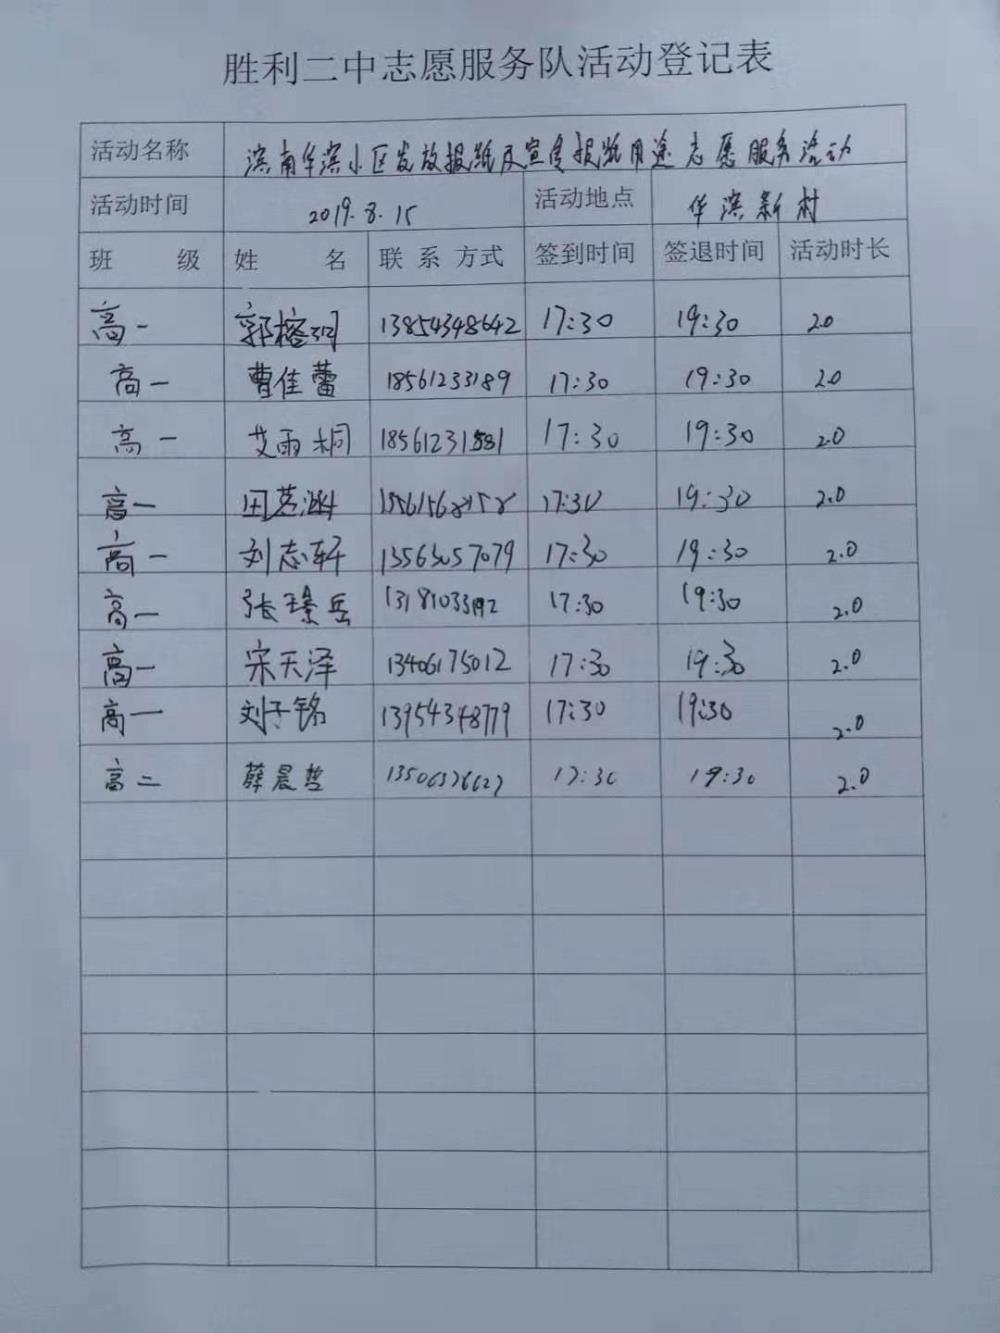 胜利二中志愿服务队活动登记表
活动名称 滨南华滨小区发放报纸及宣传报纸用途志愿服务活动
活动时间 2019.8.15 活动地点 华滨新村
班 级 姓 名 联系方式 签到时间 签退时间 活动时长
高一 郭榕 13854348642 17:30 19:30 2.0
高一 曹佳蕾 18561233189 17:30 19:30 2.0
高一 艾雨桐 17:30 19:30 2.0
高一 田茗涵 17:30 19:30 2.0
高一 刘志轩 13563057079 17:30 19:30 2.0
高一 张瑧岳 17:30 19:30 2.0
高一 宋天泽 13406175012 17:30 19:30 2.0
高一 刘子铭 13954348779 17:30 19:30 2.0
高二 薛晨哲 17:30 19:30 2.0